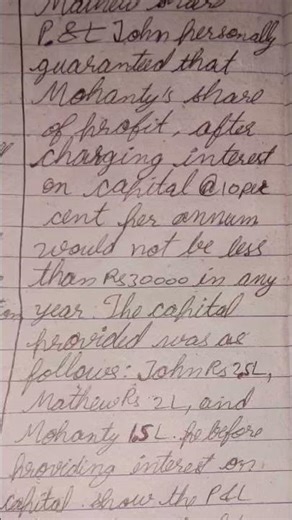 Mathew share
P. & L John personally
guaranteed that
Mohanty's share
of profit, after
charging interest
on capital @ 10 per
cent per annum
would not be less
than Rs 30000 in any
year. The capital
provided was as
follows: John Rs 2.5L,
Mathew Rs 2L, and
Mohanty 1.5L. before
providing interest on
capital. show the P&L